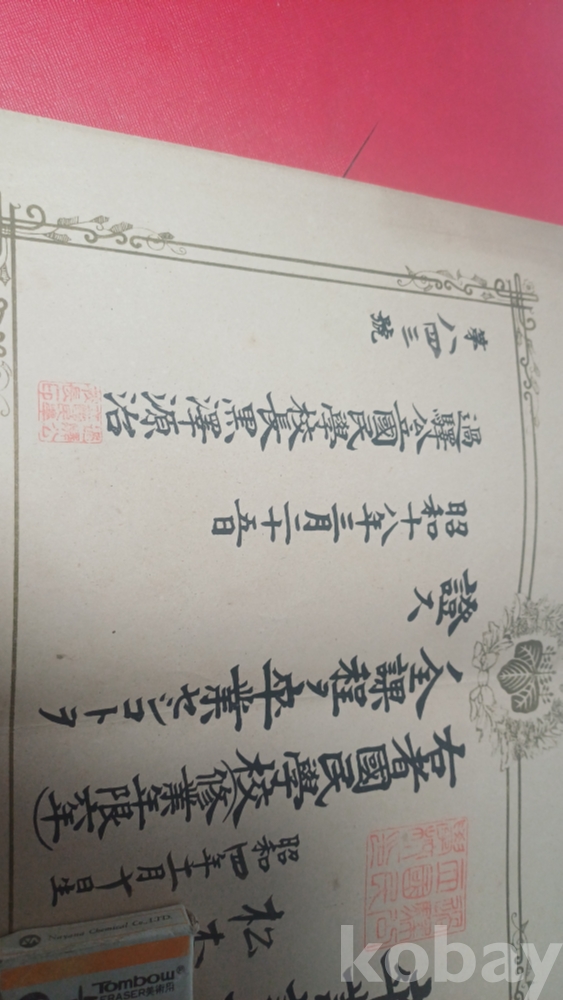 松
昭和四年二月十日生
右者國民學校(修業年限六年)
全課程ヲ卒業セシコトヲ
證ス
昭和十八年三月二十五日
公立國民學校長黒澤源治
第八四三號
Chemical Co.,LTD.
Tombow
ERASER美術用
kobay